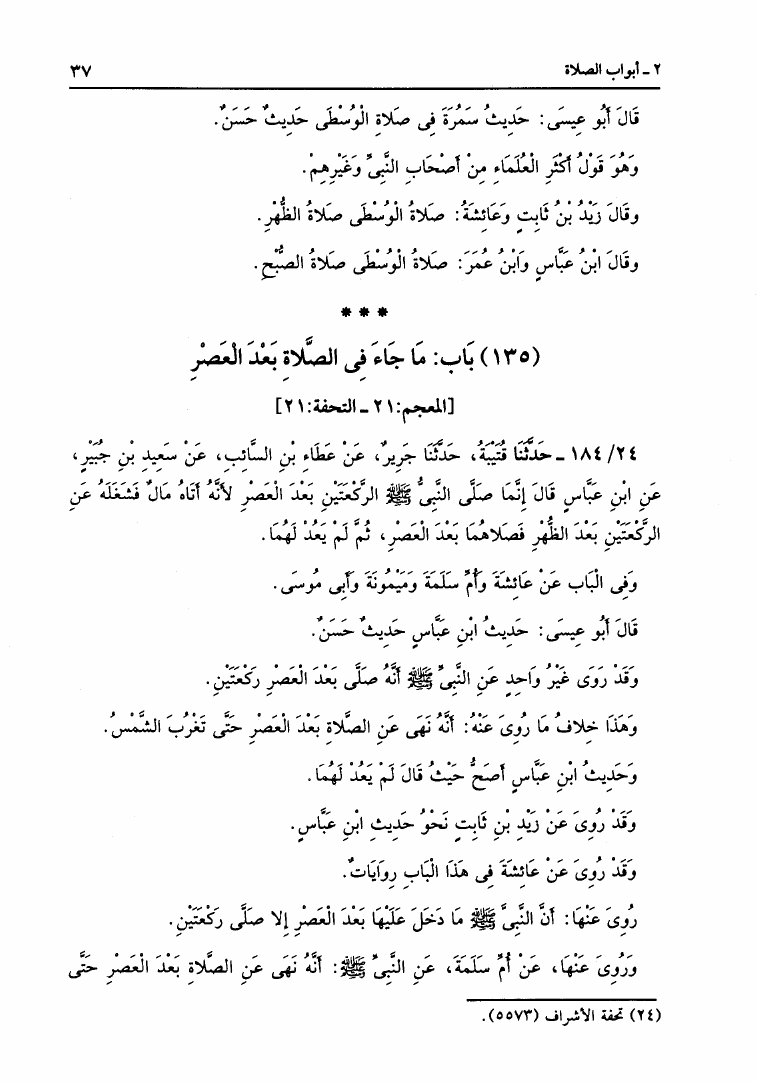 ٢ - أبواب الصلاة ٣٧
قَالَ أَبُو عِيسَى: حَدِيثُ سَمُرَةَ فِى صَلَاةِ الْوُسْطَى حَدِيثٌ حَسَنٌ.
وَهُوَ قَوْلُ أَكْثَرِ الْعُلَمَاءِ مِنْ أَصْحَابِ النَّبِىِّ وَغَيْرِهِمْ.
وقَالَ زَيْدُ بْنُ ثَابِتٍ وَعَائِشَةُ: صَلَاةُ الْوُسْطَى صَلَاةُ الظُّهْرِ.
وقَالَ ابْنُ عَبَّاسٍ وَابْنُ عُمَرَ: صَلَاةُ الْوُسْطَى صَلَاةُ الصُّبْحِ.
* * *
(١٣٥) بَاب: مَا جَاءَ فِى الصَّلَاةِ بَعْدَ الْعَصْرِ
[المعجم: ٢١ - التحفة: ٢١]
١٨٤/٢٤ - حَدَّثَنَا قُتَيْبَةُ، حَدَّثَنَا جَرِيرٌ، عَنْ عَطَاءِ بْنِ السَّائِبِ، عَنْ سَعِيدِ بْنِ جُبَيْرٍ،
عَنِ ابْنِ عَبَّاسٍ قَالَ إِنَّمَا صَلَّى النَّبِىُّ ﷺ الرَّكْعَتَيْنِ بَعْدَ الْعَصْرِ لأَنَّهُ أَتَاهُ مَالٌ فَشَغَلَهُ عَنِ
الرَّكْعَتَيْنِ بَعْدَ الظُّهْرِ فَصَلاهُمَا بَعْدَ الْعَصْرِ، ثُمَّ لَمْ يَعُدْ لَهُمَا.
وَفِى الْبَاب عَنْ عَائِشَةَ وَأُمِّ سَلَمَةَ وَمَيْمُونَةَ وَأَبِى مُوسَى.
قَالَ أَبُو عِيسَى: حَدِيثُ ابْنِ عَبَّاسٍ حَدِيثٌ حَسَنٌ.
وَقَدْ رَوَى غَيْرُ وَاحِدٍ عَنِ النَّبِىِّ ﷺ أَنَّهُ صَلَّى بَعْدَ الْعَصْرِ رَكْعَتَيْنِ.
وَهَذَا خِلافُ مَا رُوِىَ عَنْهُ: أَنَّهُ نَهَى عَنِ الصَّلَاةِ بَعْدَ الْعَصْرِ حَتَّى تَغْرُبَ الشَّمْسُ.
وَحَدِيثُ ابْنِ عَبَّاسٍ أَصَحُّ حَيْثُ قَالَ لَمْ يَعُدْ لَهُمَا.
وَقَدْ رُوِىَ عَنْ زَيْدِ بْنِ ثَابِتٍ نَحْوُ حَدِيثِ ابْنِ عَبَّاسٍ.
وَقَدْ رُوِىَ عَنْ عَائِشَةَ فِى هَذَا الْبَابِ رِوَايَاتٌ.
رُوِىَ عَنْهَا: أَنَّ النَّبِىَّ ﷺ مَا دَخَلَ عَلَيْهَا بَعْدَ الْعَصْرِ إِلا صَلَّى رَكْعَتَيْنِ.
وَرُوِىَ عَنْهَا، عَنْ أُمِّ سَلَمَةَ، عَنِ النَّبِىِّ ﷺ: أَنَّهُ نَهَى عَنِ الصَّلَاةِ بَعْدَ الْعَصْرِ حَتَّى
(٢٤) تحفة الأشراف (٥٥٧٣).